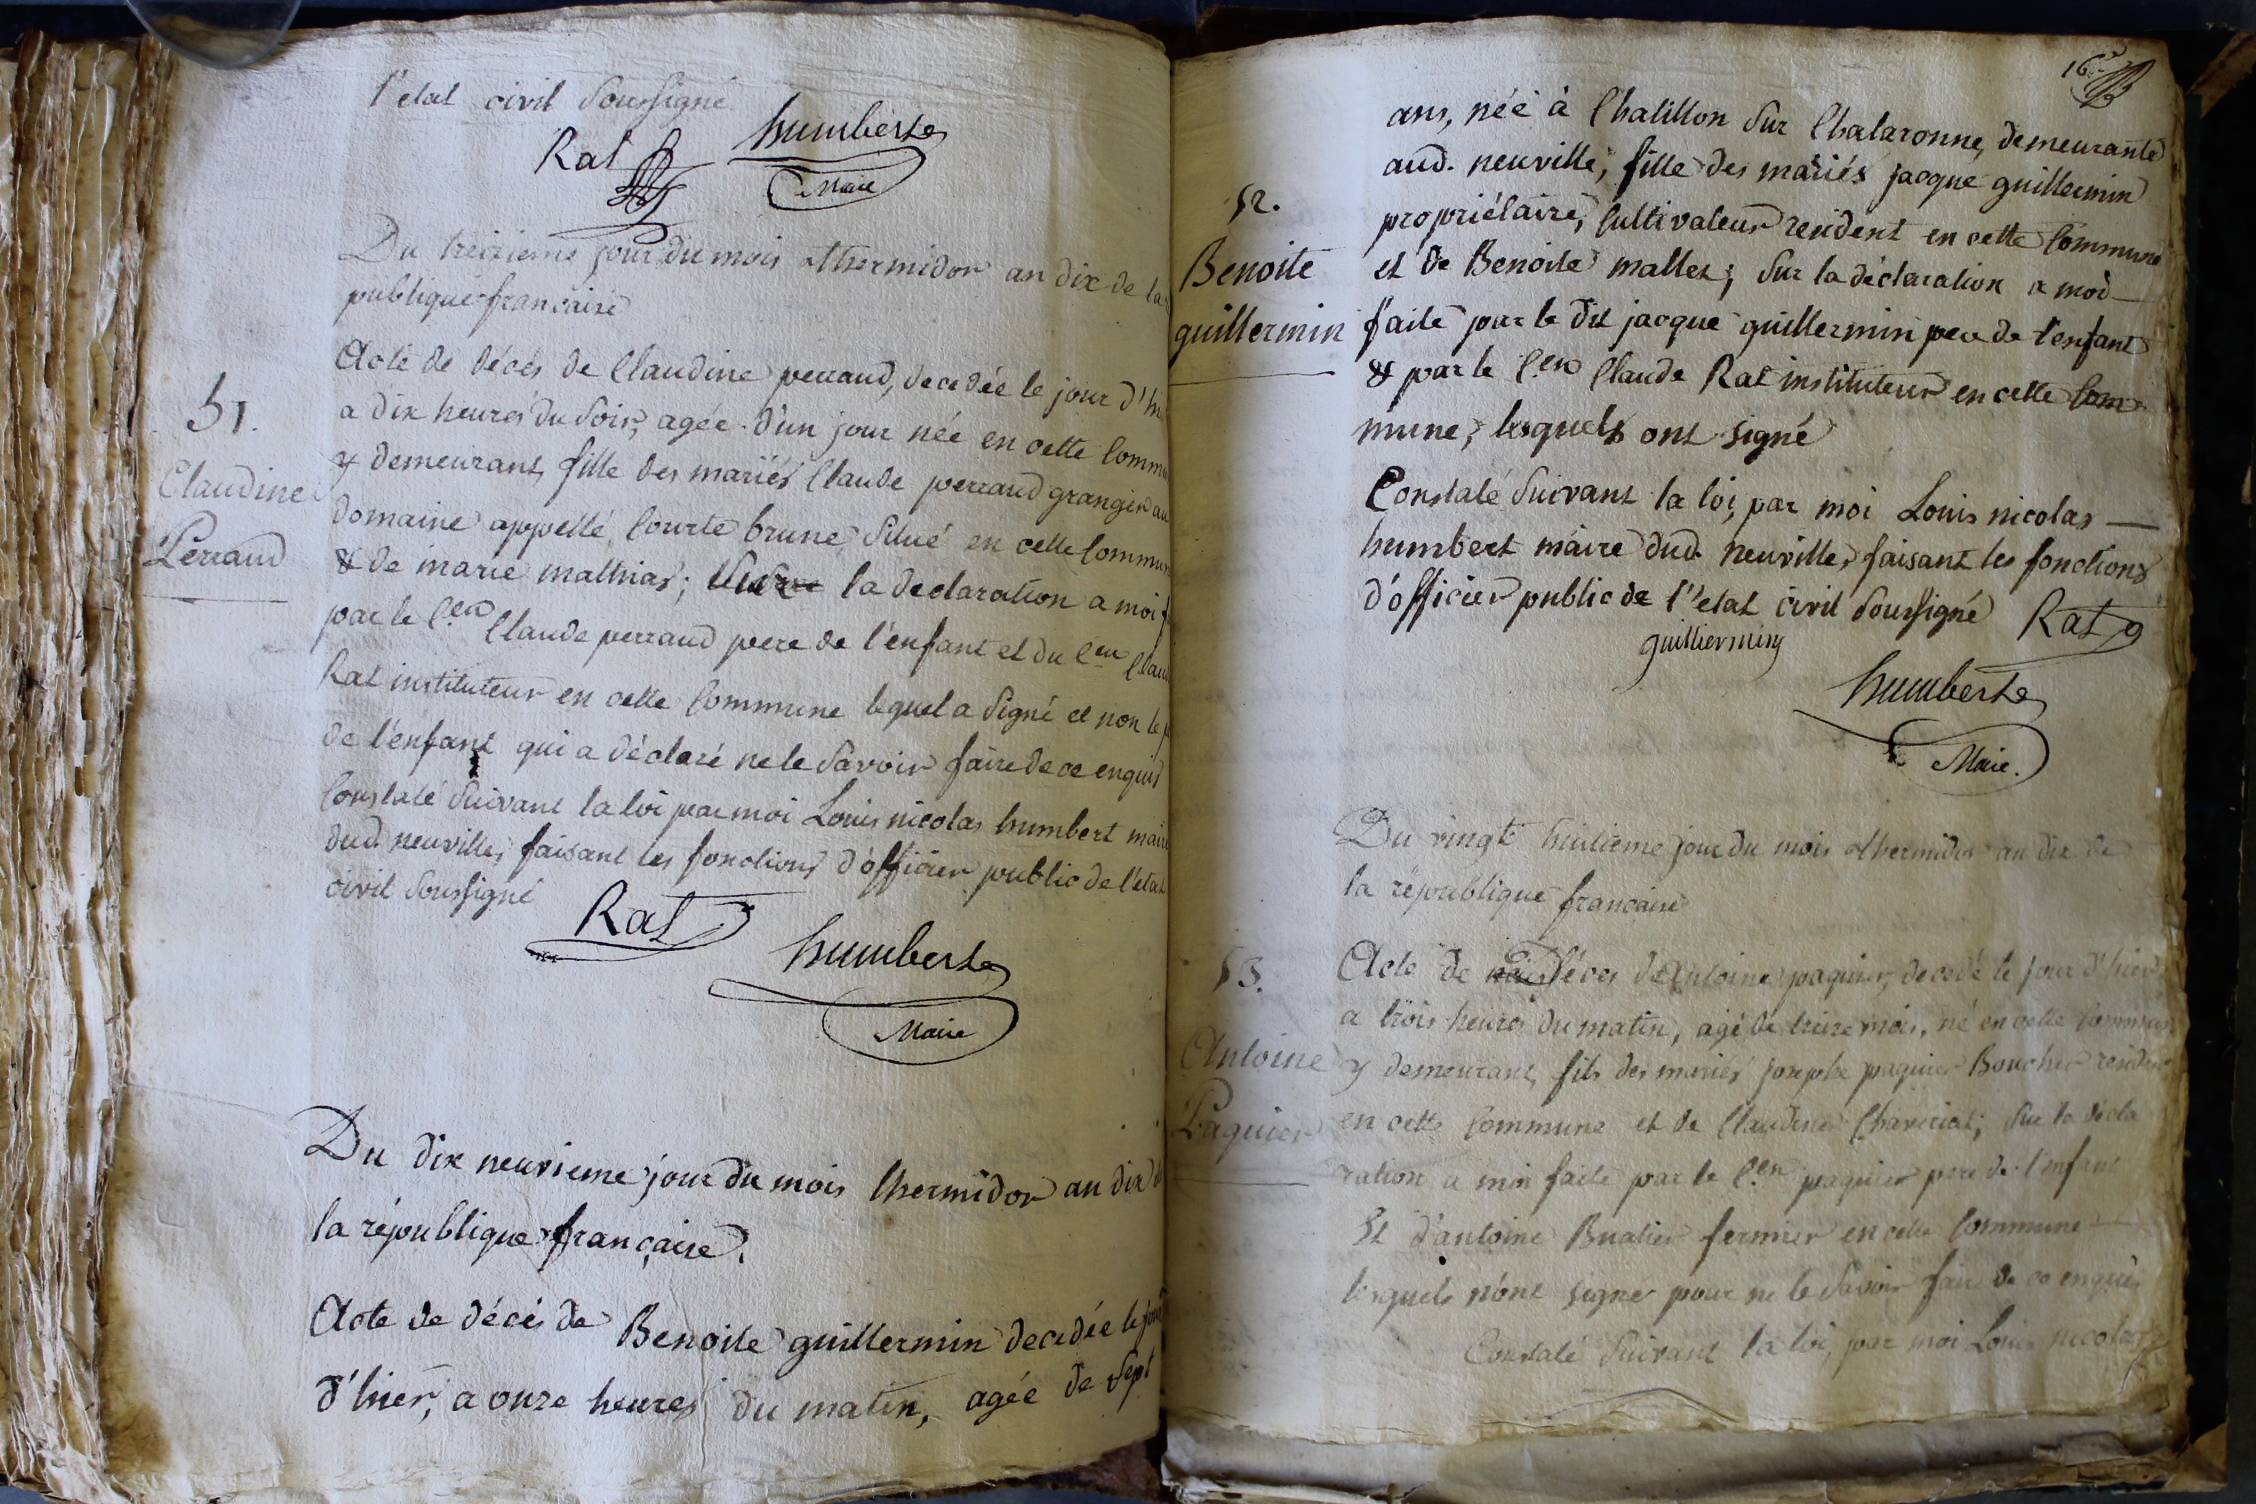 l'etat civil Soussigné
Rat humbert
Maire
Du treizieme jour du mois thermidor an dix de la
publique francaise
51.
Claudine
Perraud
Acte de décés de Claudine perraud, decedée le jour d'hi
a dix heures du Soir, agée d'un jour née en cette Commu
y demeurant, fille des mariés Claude perraud granger au
domaine appellé Courte brune Situé en cette Commun
& de marie mathias; la declaration a moi f
par le C.en Claude perraud pere de l'enfant et du C.en Clau
Rat instituteur en cette Commune lequel a Signé et non le p
de l'enfant qui a déclaré ne le Savoir faire de ce enquis
Constaté Suivant la loi par moi Louis nicolas humbert maire
dud. neuville, faisant les fonctions d'officier public de l'etat
civil Soussigné
Rat
humbert
Maire
Du dix neuvieme jour du mois thermidor an dix de
la république française.
Acte de décés de Benoite guillermin decedée le jour
d'hier, a onze heures du matin, agée de Sept
16
ans, née à Chatillon Sur Chalaronne, demeurante
aud. neuville, fille des mariés jacque guillermin
propriétaire, Cultivateur resident en cette Commune
et de Benoite mallet; Sur la déclaration a moi
52.
Benoite
guillermin
faite par le dit jacque guillermin pere de l'enfant
& par le C.en Claude Rat instituteur en cette Com
mune, lesquels ont signé
Constaté Suivant la loi, par moi Louis nicolas
humbert maire dud. neuville, faisant les fonctions
d'officier public de l'etat civil Soussigné Rat
guilliermin
humbert
Maire.
Du vingt huitieme jour du mois thermidor an dix de
la république francaise
53.
Antoine
Paquier
Acte de décés de Antoine paquier, decedé le jour d'hier
a trois heures du matin, agé de treize mois, né en cette Commune
y demeurant, fils des mariés josephe paquier Boucher resident
en cette Commune et de Claudine Chaveriat; Sur la décla
ration a moi faite par le C.en paquier pere de l'enfant
Et d'antoine Buatier fermier en cette Commune
lesquels n'ont signé pour ne le Savoir faire de ce enquis
Constaté Suivant la loi, par moi Louis nicolas